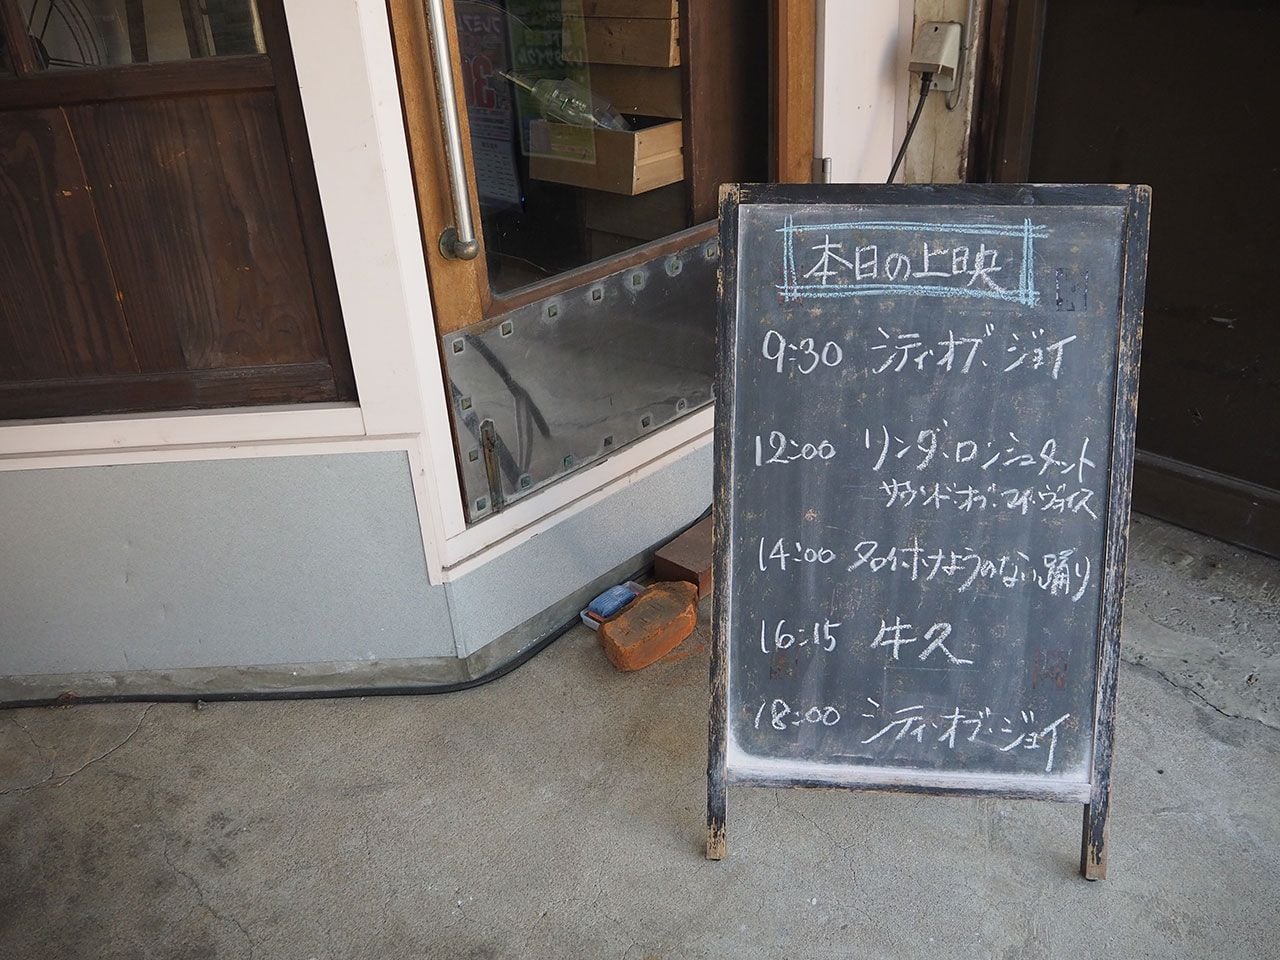 本日の上映
9:30 シティ・オブ・ジョイ
12:00 リンダ・ロンシュタット
サウンド・オブ・マイ・ヴォイス
14:00 名付けようのない踊り
16:15 牛久
18:00 シティ・オブ・ジョイ